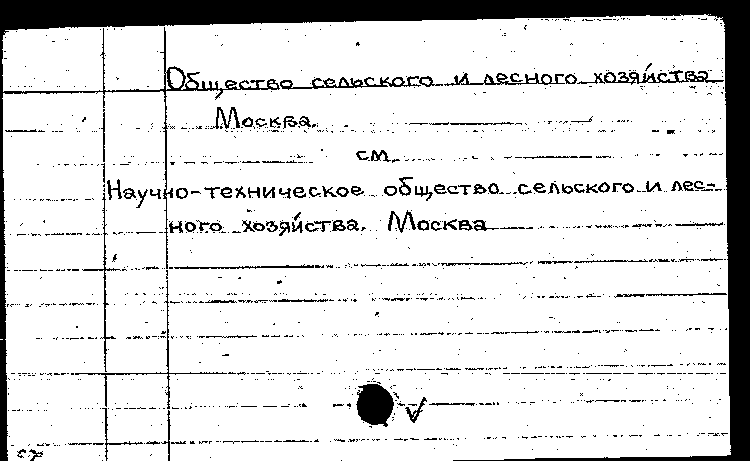 Общество сельского и лесного хозяйства
Москва.
см.
Научно-техническое общество сельского и лес-
ного хозяйства. Москва